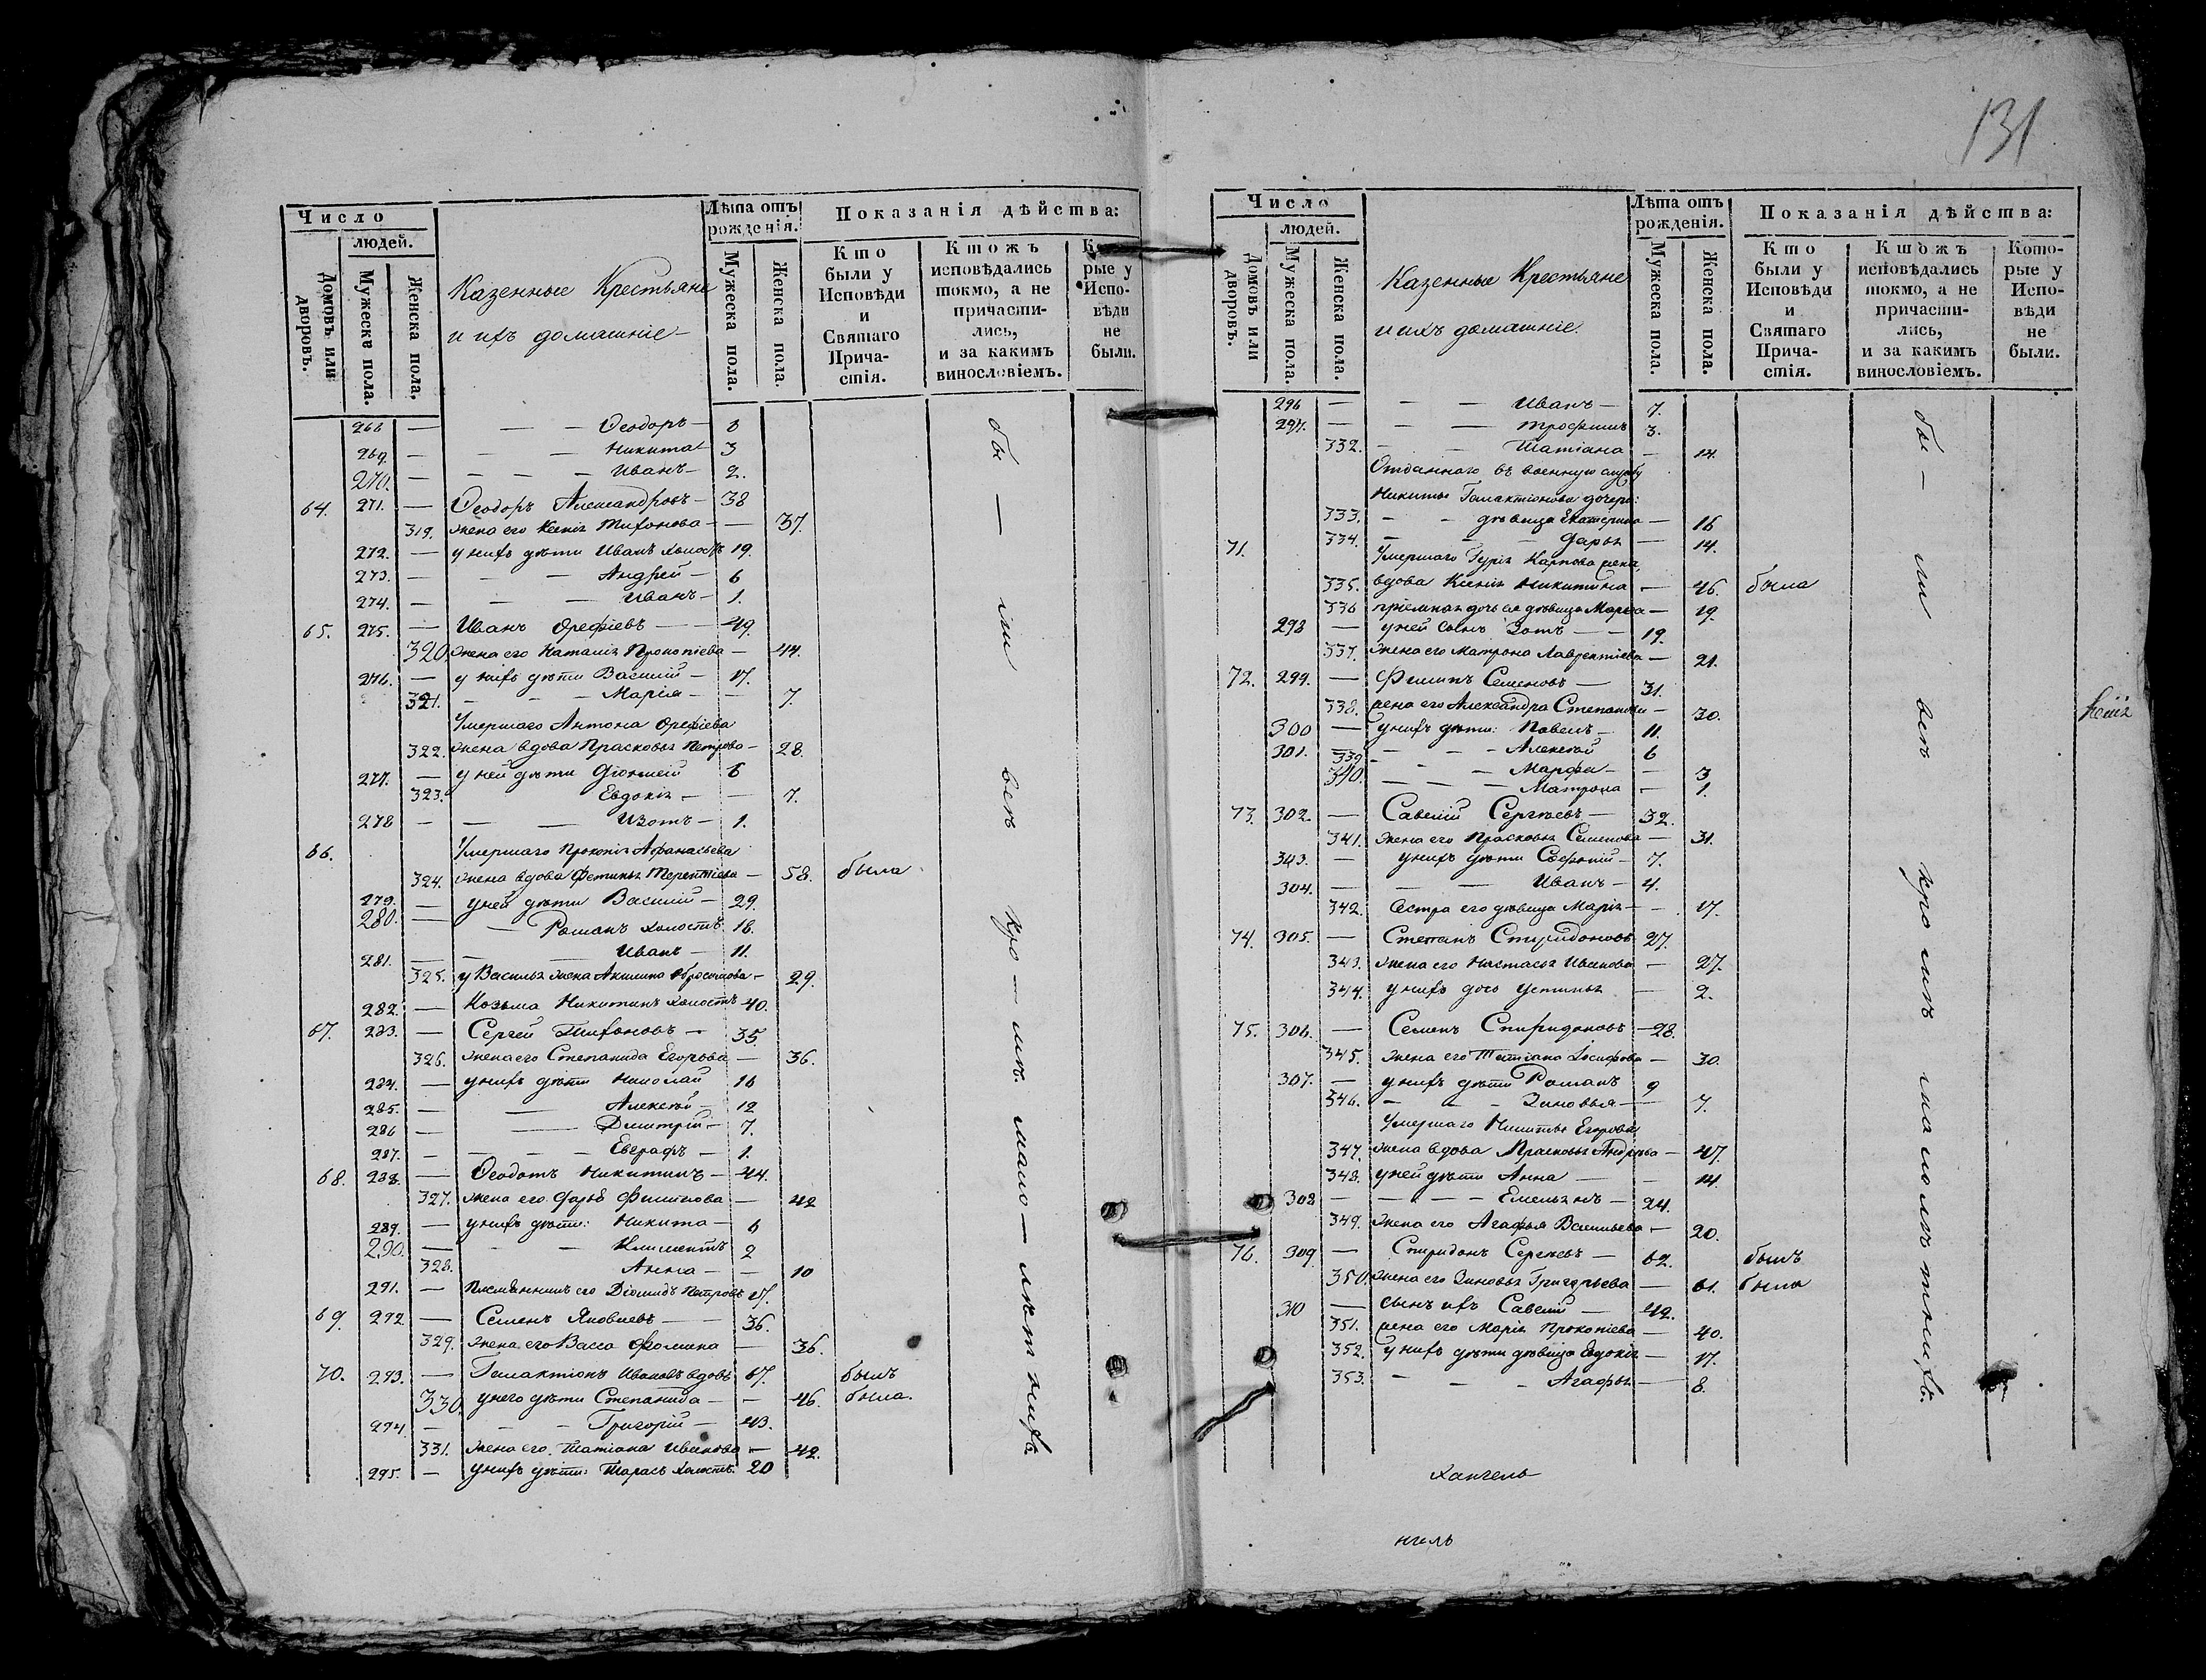 Число
людей.
Домовъ или дворовъ.
Мужеска пола.
Женска пола.
Казенные Крестьяне
и ихъ домашніе
Лѣта отъ рожденія.
Мужеска пола.
Женска пола.
Показанія дѣйства:
Кто были у Исповѣди и Святаго Прича- стія.
Ктожъ исповѣдались токмо, а не причасти- лись, и за какимъ винословіемъ.
рые у Испо- вѣди не были.
268 — — — Ѳеодоръ — 8
269. — — Никита 3
270. — — — Иванъ — 2.
64. 271. — Ѳеодоръ Александровъ — 38
319. жена его Ксенія Тихонова — — 37.
272. — у нихъ дѣти Иванъ холостъ 19.
273. — — — Андрей — 6
274. — — — Иванъ — 1.
65. 275. — Иванъ Орефіевъ — — 49.
320. жена его Наталія Прокопіева — 44.
276. — у нихъ дѣти Василій — 17.
321. — — — Марія — — 7.
Умершаго Антона Орефіева
322. жена вдова Прасковья Петрова — 28.
277. — у ней дѣти 6
323. Евдокія — — 7.
278 — — — Изотъ — 1.
66. Умершаго Прокопія Аѳанасьева
324. жена вдова Фетинья Терентіева — 58. была
279. — у ней дѣти Василій — 29.
280. — — Романъ холостъ 16.
281. — — Иванъ — 11.
325. у Василья жена Акилина Абросимова — 29.
282. — Козьма Никитинъ холостъ 40.
67. 283. — Сергей Тихоновъ — 35.
326. жена его Степанида Егорьева — 36.
284. — у нихъ дѣти Николай 16
285. — — Алексѣй — 12
286 — — Димитрій — 7.
287. — — — — Евграфъ — 1.
68. 288. — Ѳеодотъ Никитинъ — 44.
327. жена его Дарья Филипова — 42
289. — у нихъ дѣти: Никита — 6
290. — — — Климентъ 2
328. Анна — — 10
291. — Племянникъ его Діомидъ Петровъ 17.
69. 292 — Семенъ Яковлевъ — 36.
329. жена его Васса Фомина — 36.
70. 293. — Галактіонъ Ивановъ вдовъ 67. былъ
330. у него дѣти Степанида — — 46. была.
294. — — — Григорій — 43.
331. жена его Татіана Иванова — 42.
295. — у нихъ дѣти: Тарасъ холостъ. 20
бы — ли всѣ кро — мѣ мало — лѣтнихъ
131
Число
людей.
Домовъ или дворовъ.
Мужеска пола.
Женска пола.
Казенные Крестьяне
и ихъ домашніе.
Лѣта отъ рожденія.
Мужеска пола.
Женска пола.
Показанія дѣйства:
Кто были у Исповѣди и Святаго Прича- стія.
Ктожъ исповѣдались токмо, а не причасти- лись, и за какимъ винословіемъ.
Кото- рые у Испо- вѣди не были.
296 — — — Иванъ — 7.
297. — — — Трофимъ 3.
332. — — Татіана — 14.
Отданнаго въ военную службу
Никиты Галактіонова дочери:
333. — — дѣвица Екатерина — 16
334. — — — Дарья — 14.
71. Умершаго Гурія Карпова жена
335. вдова Ксенія Никитина — 46. была
336 пріемная дочь ея дѣвица Марѳа — 19.
298 — у ней сынъ Зотъ — — 19.
337. жена его Матрона Лаврентіева — 21.
72. 299. — Филипъ Семеновъ — 31.
338. жена его Александра Степанова — 30.
300 — у нихъ дѣти: Павелъ — 11.
301. — — — — Алексѣй 6
339. — — — Марѳа — — 3
340. — — — Матрона — 1.
73. 302. — Савелій Сергѣевъ — 32.
341. жена его Прасковья Семенова — 31.
343. — у нихъ дѣти 7.
304. — — — Иванъ — 4.
342. сестра его дѣвица Марія — — 17.
74. 305. — Степанъ Спиридоновъ 27.
343. жена его Настасья Иванова — 27.
344. у нихъ дочь Устинья — 2.
75. 306. — Семенъ Спиридоновъ — 28.
345. жена его Татіана Іосифова — 30.
307. — у нихъ дѣти Романъ 9
346. — — — Зиновья — — 7.
Умершаго Никиты Егорова
347. жена вдова Прасковья Андреева — 47.
348. у ней дѣти Анна — — 14.
308 — — — — Емельянъ — 24.
349. жена его Агафья Васильева — 20.
76. 309 — Спиридонъ Сергѣевъ — 62. былъ
350. жена его Зиновья Григорьева — 61. была
310 — сынъ ихъ Савелій — 42.
351. жена его Марія Прокопіева — 40.
352. у нихъ дѣти дѣвица Евдокія — 17.
353. — — — Агафья — 8.
бы — ли всѣ кромѣ малолѣтнихъ.